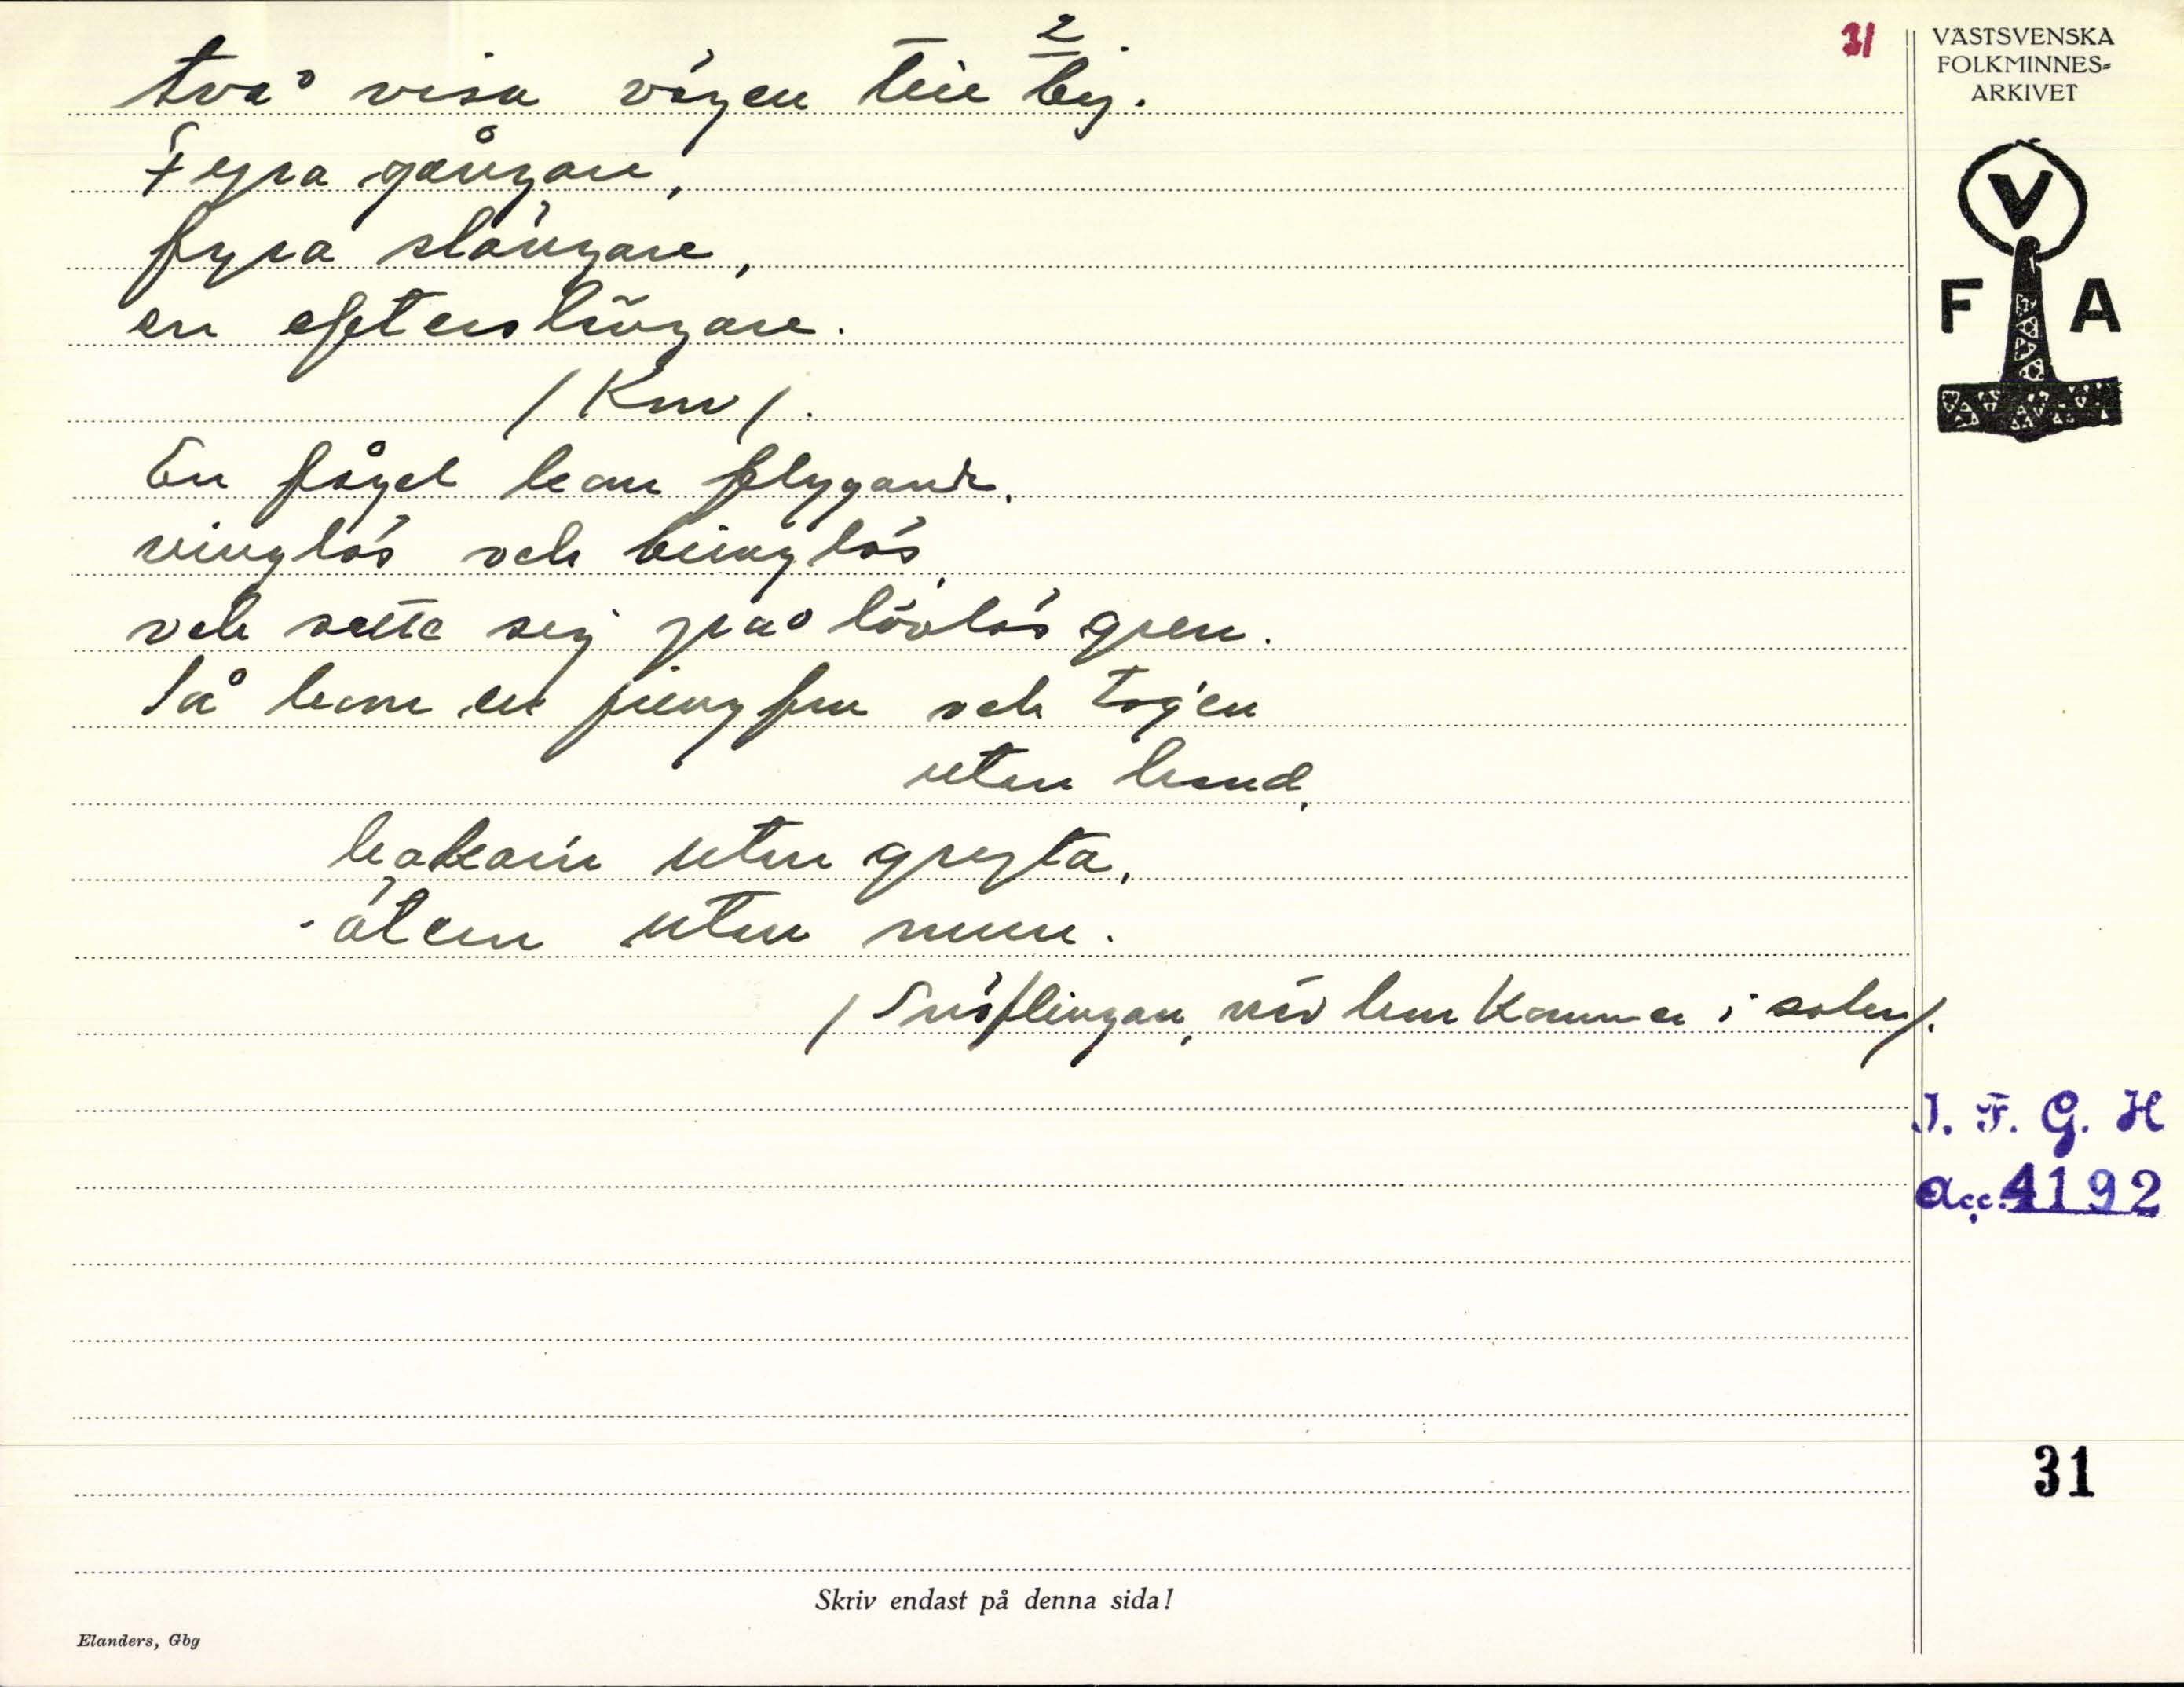 2
31
två visa vägen till by.
Fyra gångare,
fyra slängare,
en eftersläng​are.
/Ko/.
En fågel kom flygande,
vinglös och binglös,
och satte sej på lövlös gren.
Så kom en jungfru och tog'en
uten hand,
koka'n uten gryta,
åt en uten mun.
/Snöflingan, når hon kommer i solen/.
VÄSTSVENSKA
FOLKMINNES-
ARKIVET
V
F A
I. F. G. H
Acc. 4192
31
Skriv endast på denna sida!
Elanders, Gbg